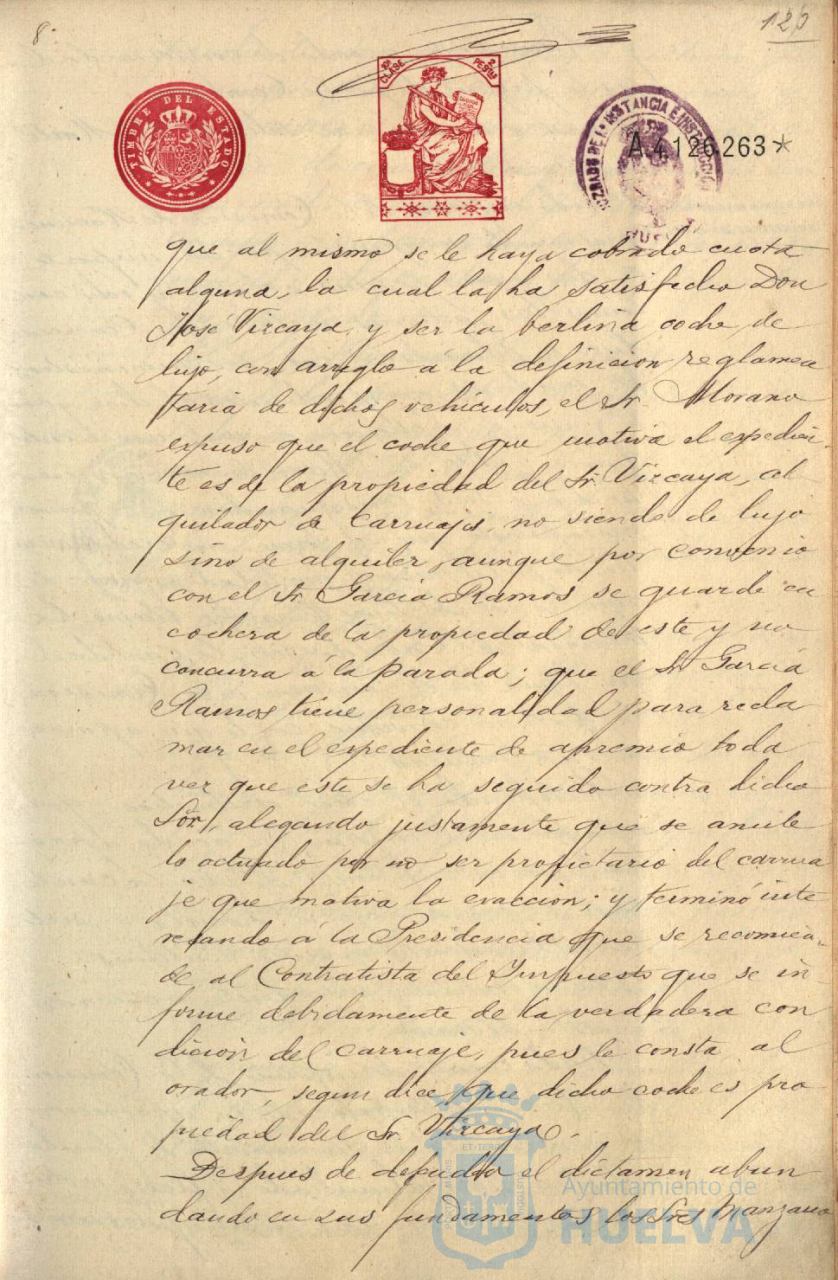 8.
120
TIMBRE DEL ESTADO
10ª CLASE
2 PESTAS
JUZGADO DE 1ª INSTANCIA E INSTRUCCION
HUELVA
A4126263*
que al mismo, se le haya cobrado cuota
alguna, la cual la ha satisfecho Don
José Vizcaya, y ser la berlina coche de
lujo, con arreglo á la definicion reglamen
taria de dichos vehículos, el Sr. Morano
expuso que el coche que motiva el expedien-
te es de la propiedad del Sr. Vizcaya, al
quilador de carruajes, no siendo de lujo
sino de alquiler, aunque por convenio
con el Sr. Garcia Ramos se guarde en
cochera de la propiedad de este y no
concurra á la parada; que el Sr. Garcia
Ramos tiene personalidad para recla
mar en el expediente de apremio toda
vez que este se ha seguido contra dicho
Sor, alegando justamente que se anule
lo actuado por no ser propietario del carrua
je que motiva la exaccion; y terminó inte
resando á la Presidencia que se recomien-
de al Contratista del Impuesto que se in-
forme debidamente de la verdadera con
dicion del carruaje, pues le consta al
orador, segun dice, que dicho coche es pro
piedad del Sr. Vizcaya.
Despues de defender el dictamen abun
dando en sus fundamentos los Sres Manzano
Ayuntamiento de
HUELVA